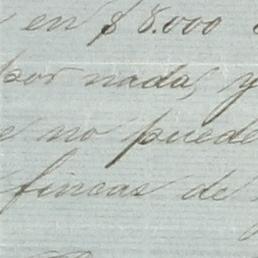 en $ 8.000
por nada, y
e no puede
fincas de